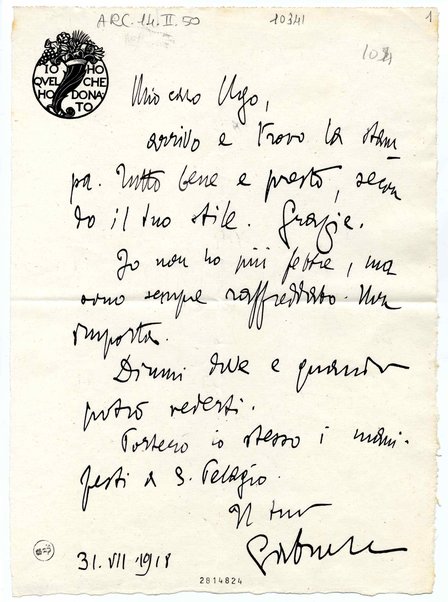 ARC. 14. II. 50
10341
1
IO HO
QVEL CHE
HO DONA-
TO
Mio caro Ugo,
arrivo e trovo la stam
pa. Tutto bene e presto, secon
do il tuo stile. Grazie.
Io non ho più febbre, ma
sono sempre raffreddato. Non
importa.
Dimmi dove e quando
potrò vederti.
Porterò io stesso i mani-
festi a S. Pelagio.
Il tuo
Gabriele
31. VII 1918
2814824